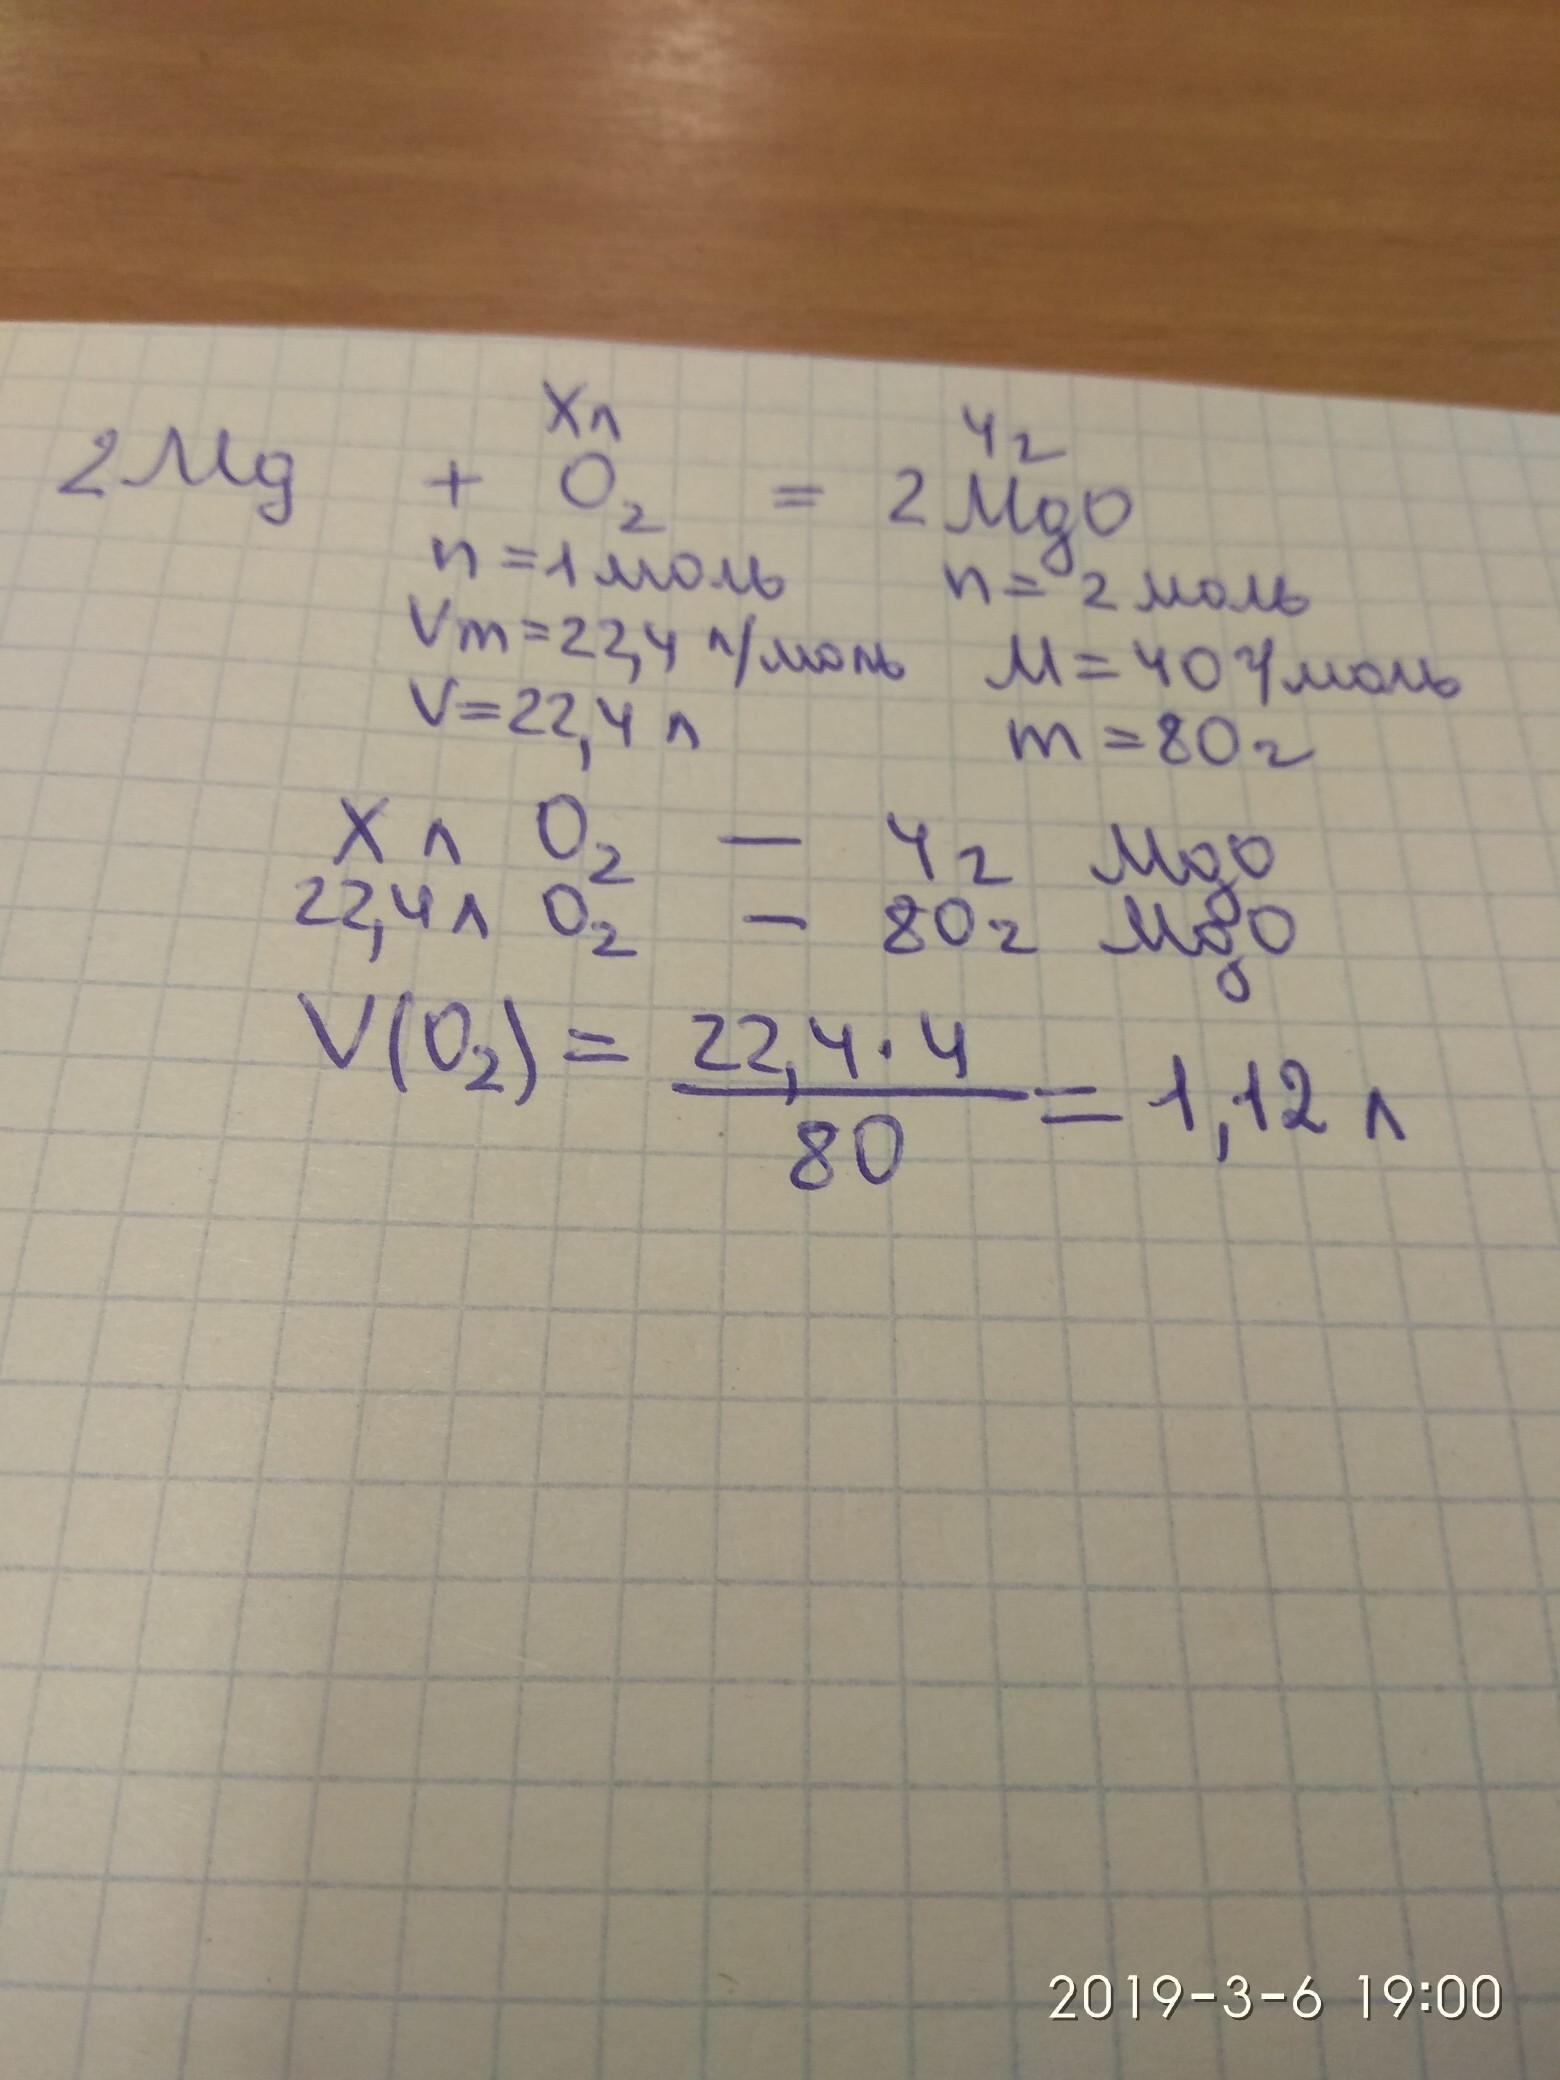 Xл 4г
2Mg + O₂ = 2MgO
n=1моль n=2моль
Vm=22,4 л/моль M=40 г/моль
V=22,4 л m=80г
X л O₂ — 4г MgO
22,4л O₂ — 80г MgO
V(O₂) = 22,4·4 / 80 = 1,12 л
2019-3-6 19:00